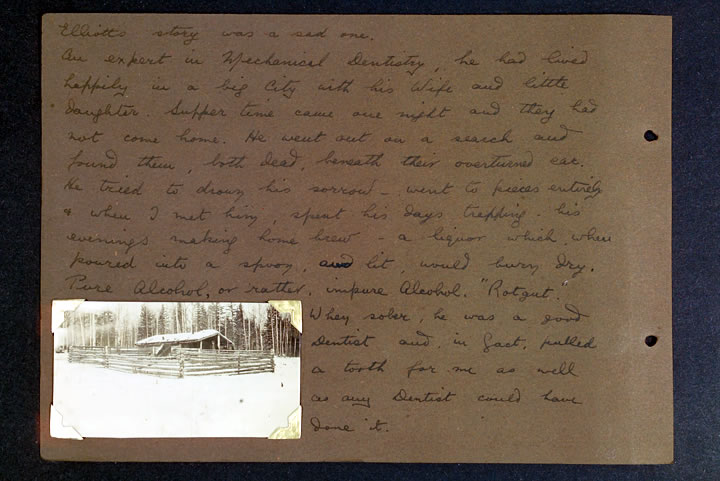 Elliott's story was a sad one.
An expert in Mechanical Dentistry, he had lived
happily in a big City with his Wife and little
daughter. Supper time came one night and they had
not come home. He went out on a search and
found them, both dead, beneath their overturned car.
He tried to drown his sorrow - went to pieces entirely
& when I met him, spent his days trapping - his
evenings making home brew - a liquor which, when
poured into a spoon, and lit, would burn dry.
Pure Alcohol, or rather, impure Alcohol. "Rotgut.
When sober, he was a good
Dentist and, in fact, pulled
a tooth for me as well
as any Dentist could have
done it.